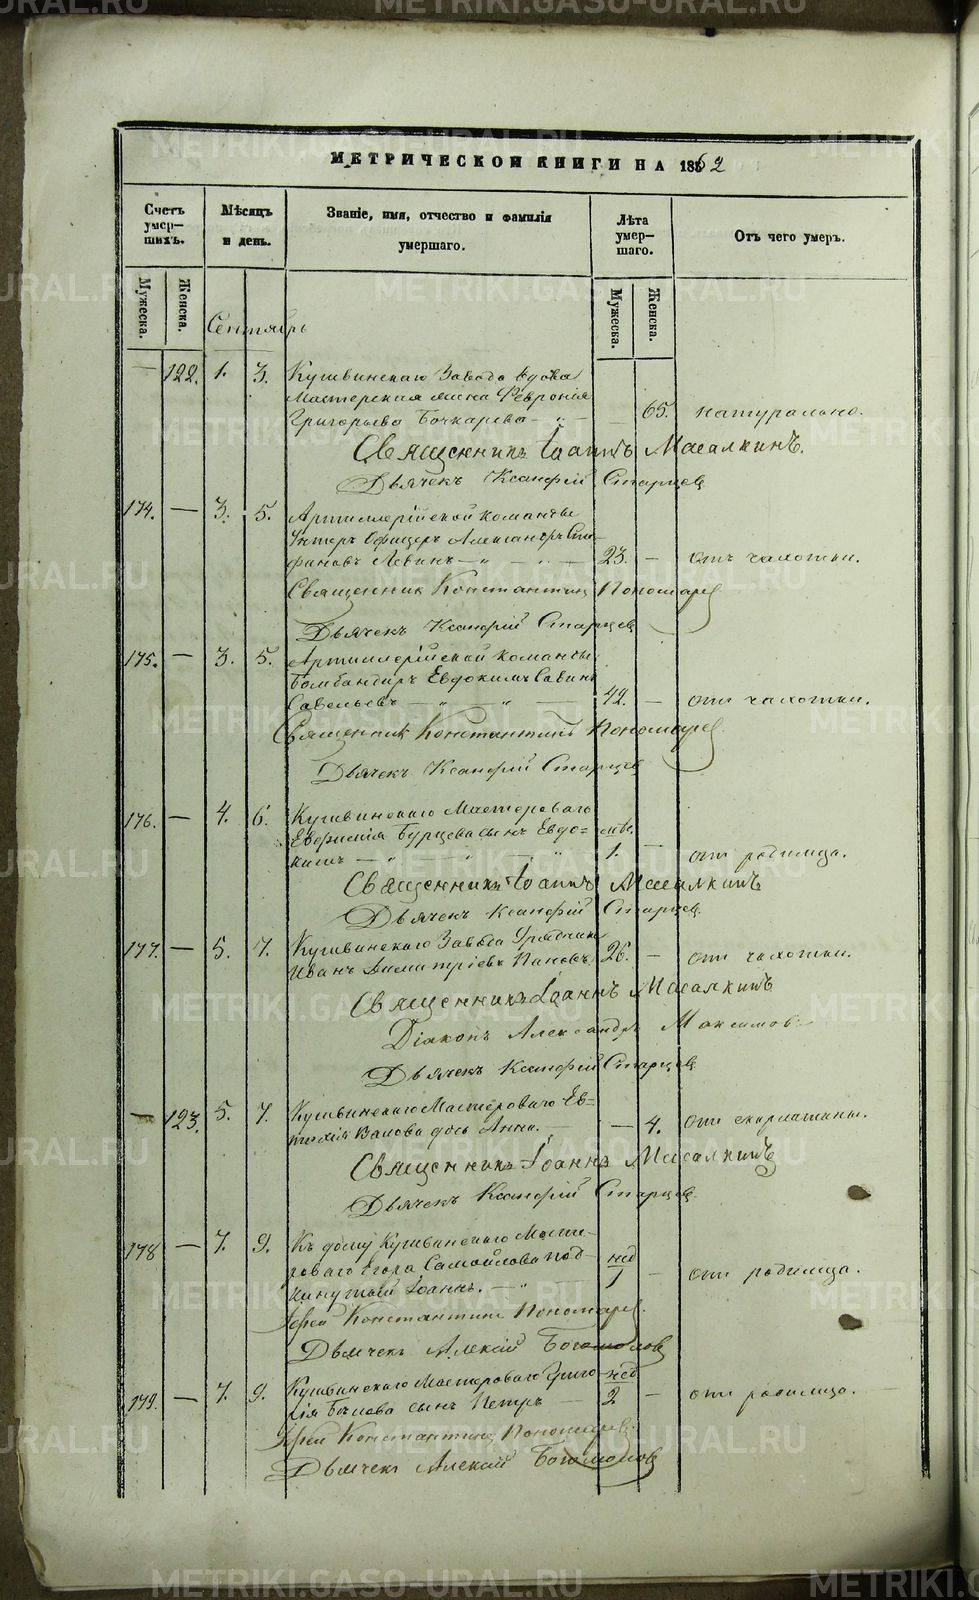 МЕТРИЧЕСКОЙ КНИГИ НА 1862
Счетъ умер-шихъ.
Мѣсяцъ и день.
Званіе, имя, отчество и фамилія умершаго.
Лѣта умер-шаго.
Отъ чего умеръ.
Мужеска.
Женска.
Мужеска.
Женска.
Сентябрь
— 122. 1. 3. Кушвинскаго Завода вдова
Мастерская жена Феврония
Григорьева Бочкарева — 65. натурально.
Священникъ Іоаннъ Масалкинъ.
Дьячекъ Ксанфій Старцев
174. — 3. 5. Артиллерійской команды
Унтеръ Офицеръ Александръ Сте-
фановъ Левинъ — 23. — отъ чахотки.
Священник Константинъ Пономарев
Дьячекъ Ксанфій Старцев
175. — 3. 5. Артиллерійской команды
Бомбандиръ Евдокимъ Савин
Савельевъ — 42. — отъ чахотки.
Священник Константинъ Пономарев
Дьячекъ Ксанфій Старцев
176. — 4. 6. Кушвинскаго Мастероваго
Евфимія Бурцева сынъ Евдо- мѣ.
кимъ — 1. — отъ родимца.
Священникъ Іоаннъ Масалкинъ
Дьячекъ Ксанфій Старцев.
177. — 5. 7. Кушвинскаго Завода Урядникъ
Иванъ Димитріевъ Пановъ 26. — отъ чахотки.
Священникъ Іоаннъ Масалкинъ
Діаконъ Александръ Максимов
Дьячекъ Ксанфій Старцев.
— 123. 5. 7. Кушвинскаго Мастероваго Ев-
тихія Валова дочь Анна. — 4. отъ скарлатины.
Священникъ Іоаннъ Масалкинъ
Дьячекъ Ксанфій Старцев.
178 — 7. 9. Къ дому Кушвинскаго Масте-
роваго Егора Самойлова под- нед
кинутый Іоаннъ. — 1 — отъ родимца.
Іерей Константинъ Пономарев.
Дьячекъ Алексій Богомолов
179. — 7. 9. Кушвинскаго Мастероваго Григо- нед
рія сынъ Петръ — 2 — отъ родимца.
Іерей Константинъ Пономарев.
Дьячекъ Алексій Богомолов
METRIKI.GASO-URAL.RU